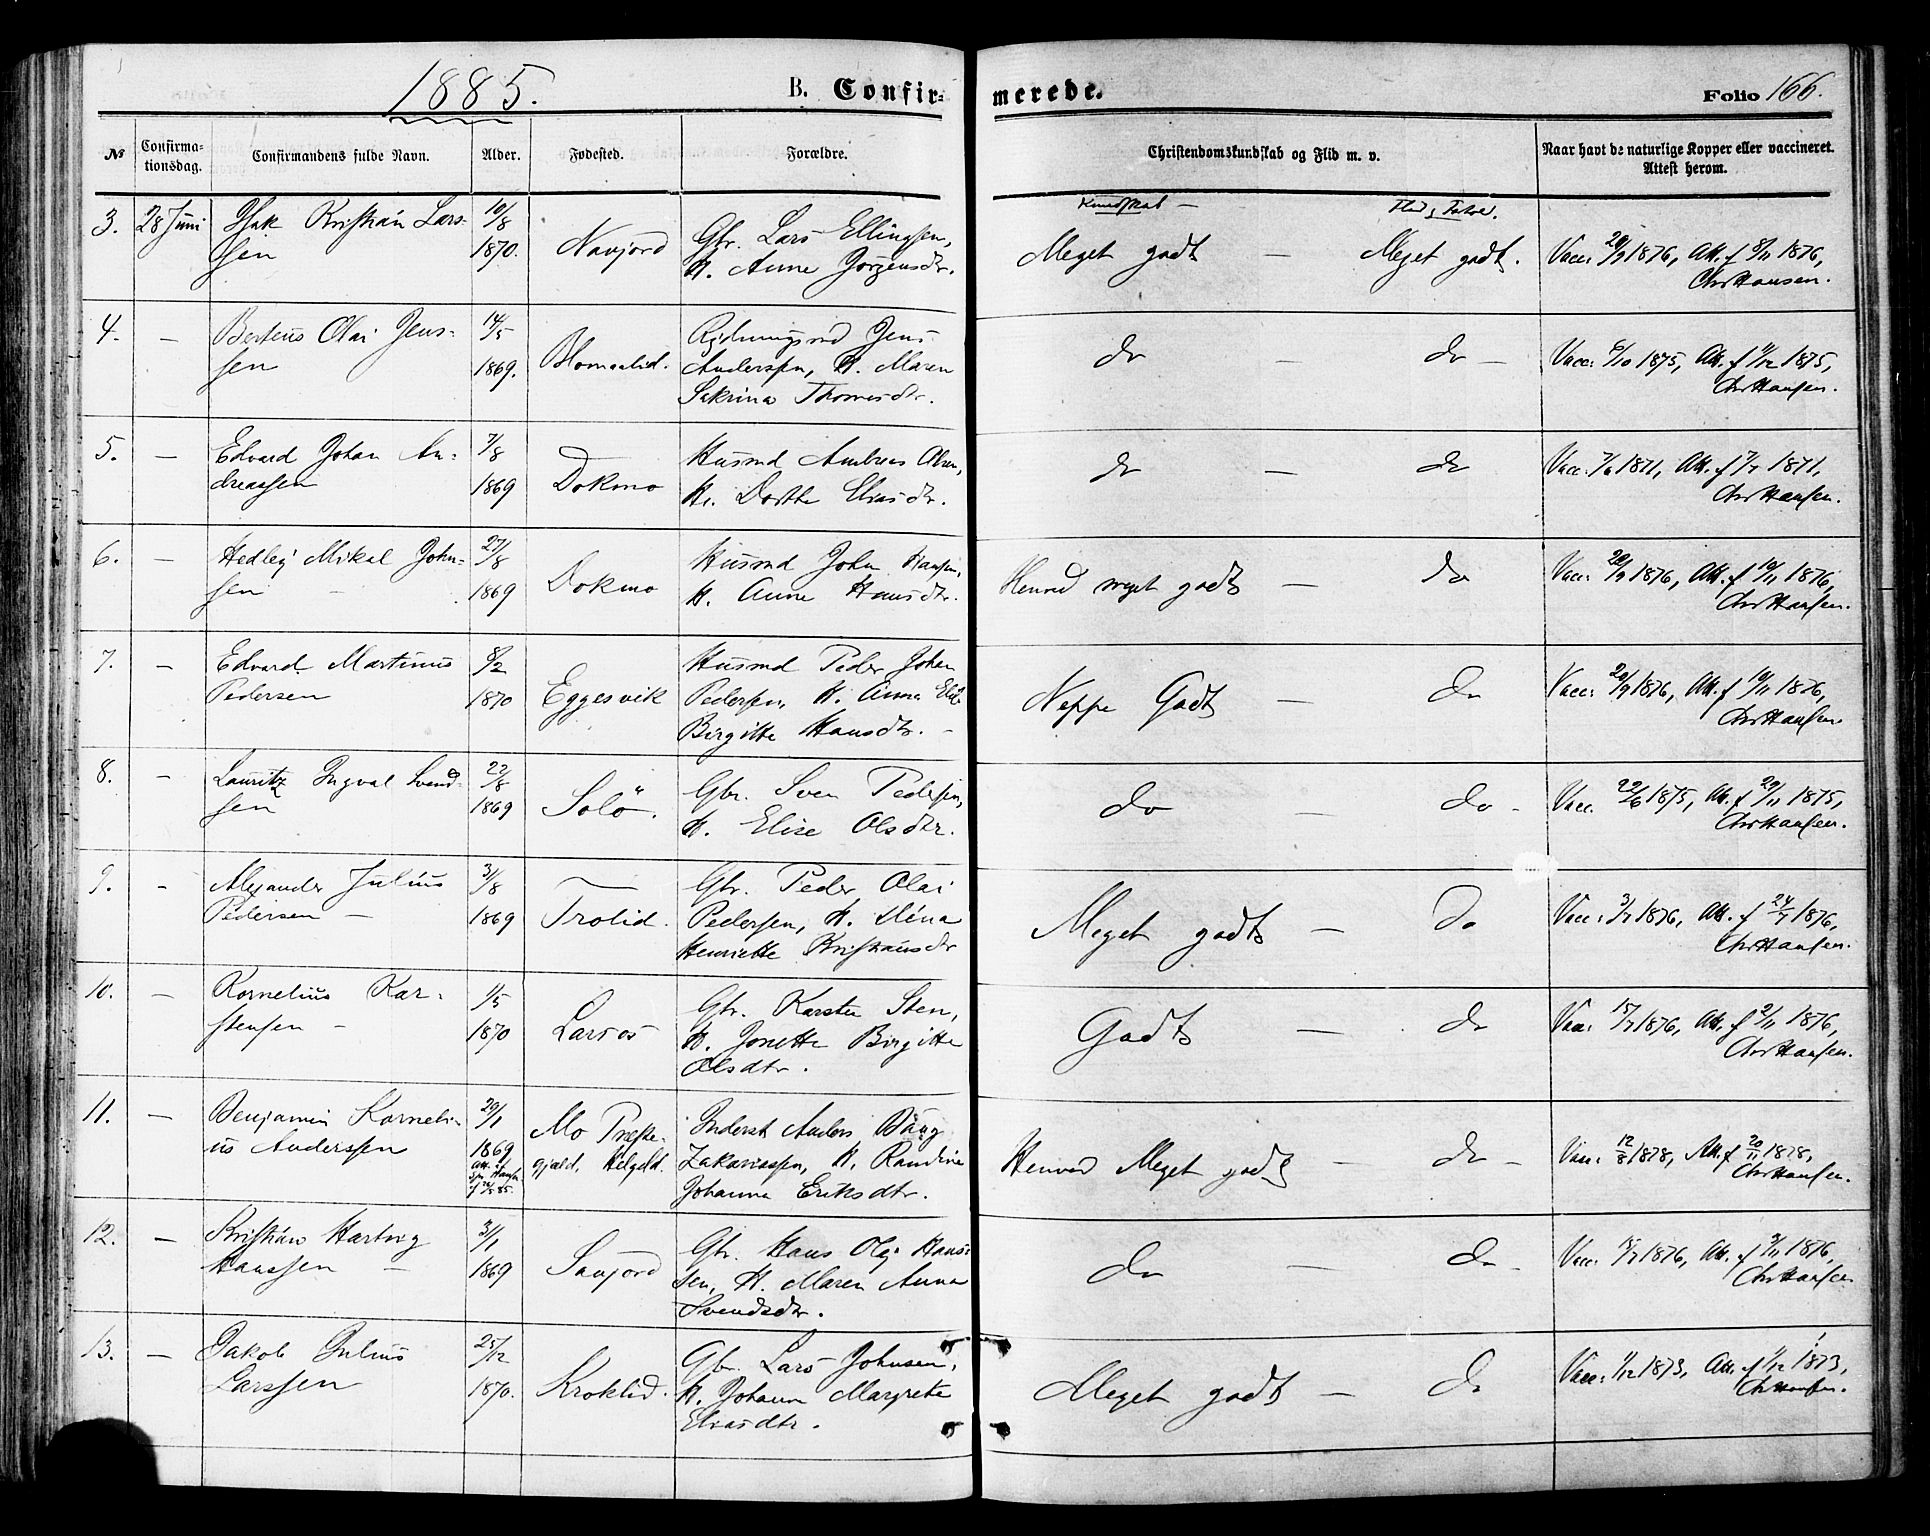 1885.
B. Confir-
merede.
Folio 166.
№
Confirma-
tionsdag.
Confirmandens fulde Navn.
Alder.
Fødested.
Forældre.
Christendomskundskab og Flid m. v.
Naar havt de naturlige Kopper eller vaccineret.
Attest herom.
Kundskab —
3. 28 Juni Isak Kristian Lars- 10/8
sen 1870. Navjord Gbr. Lars Ellingsen,
H. Anne Jørgensdtr.
Meget godt — Meget godt. Vacc: 1876, Att. f 8/11 1876,
Chr Hansen.
4. — Berteus Olai Jens- 14/5
sen 1869. Blomaalid. Jens
Anderssen, H. Maren
Sakrina Thomesdtr.
do — do — Vacc: 6/10 1875, Att. f 11/12 1875,
Chr Hansen.
5. — Edvard Johan An- 7/8
dreassen 1869 Dokmo Husmd Andreas Olsen,
H. Dorthe Eliasdtr.
do — do Vacc: 7/6 1871, Att. f 7/7 1871,
Chr Hansen.
6. — Hedley Mikal John- 27/8
sen — 1869 Dokmo Husmd John Hansen,
H. Anne Hansdtr.
Henved meget godt — do Vacc: 20/9 1876, Att. f 10/11 1876,
Chr Hansen.
7. — Edvard Martinus 8/2
Pedersen 1870 Eggesvik Husmd Peder Johan
Pedersen, H. Anna
Birgitte Hansdtr. —
Neppe Godt — do Vacc: 20/9 1876, Att. f 10/11 1876,
Chr Hansen
8. — Lauritz Ingval Svend- 22/8
sen 1869 Solö. Gbr. Sven Pedersen,
H. Elise Olsdtr.
do — do — Vacc. 1875, Att. f 29/11 1875,
Chr Hansen.
9. — Alexander Julius 31/8
Pedersen — 1869 Trolid. Gbr. Peder Olai
Pedersen, H.
Henriette Kristiansdtr
Meget godt — do Vacc: 3/7 1876, Att. f 24/7 1876,
Chr Hansen.
10. — Kornelius Kar- 1/5
stensen — 1870 Larsos Gbr. Karsten Sten,
H. Jonette Birgitte
Olsdtr.
Godt — do Vacc: 15/7 1876, Att. f 2/11 1876,
Chr Hansen.
11. — Benjamin Korneli- 29/1
us Anderssen 1869 Mo Præste-
gjæld, Helgeld. Inderst Anders Baug
Zakariassen, H. Randine
Johanna Eriksdtr.
Henved Meget godt — do — Vacc: 12/8 1878, Att. f 20/11 1878,
Chr Hansen.
12. — Kristian Hartvig 31/1
Hanssen — 1869 Savjord Gbr. Hans Olej Hans-
sen, H. Maren Anna
Svendsdtr.
do — do — Vacc: 15/7 1876, Att. f 3/11 1876,
Chr Hansen
13. — Jakob Julius 25/12
Larssen 1870. Kroklid. Gbr. Lars Johnsen,
H. Johanna Margrete
Eliasdtr.
Meget godt — do Vacc: 1/12 1873, Att. f 1/12 1873,
Chr Hansen.